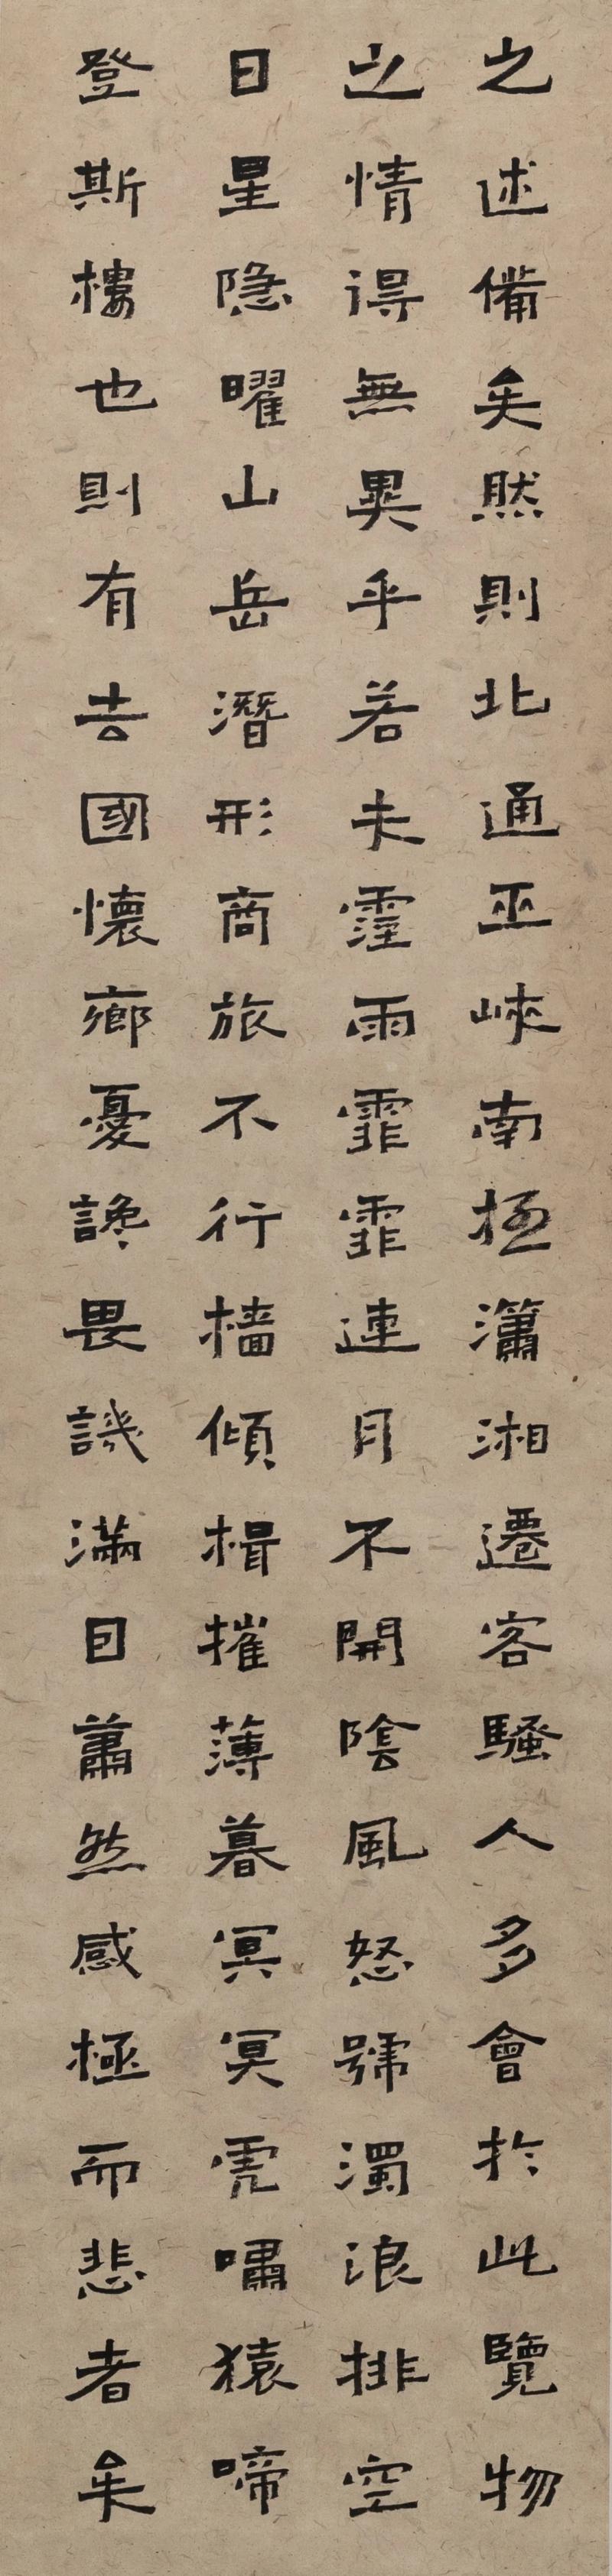 之述備矣然則北通巫峽南極瀟湘遷客騷人多會於此覽物
之情得無異乎若未霪雨霏霏連月不開陰風怒號濁浪排空
日星隱曜山岳潛形商旅不行檣傾楫摧薄暮冥冥虎嘯猿啼
登斯樓也則有去國懷鄉憂讒畏譏滿目蕭然感極而悲者矣